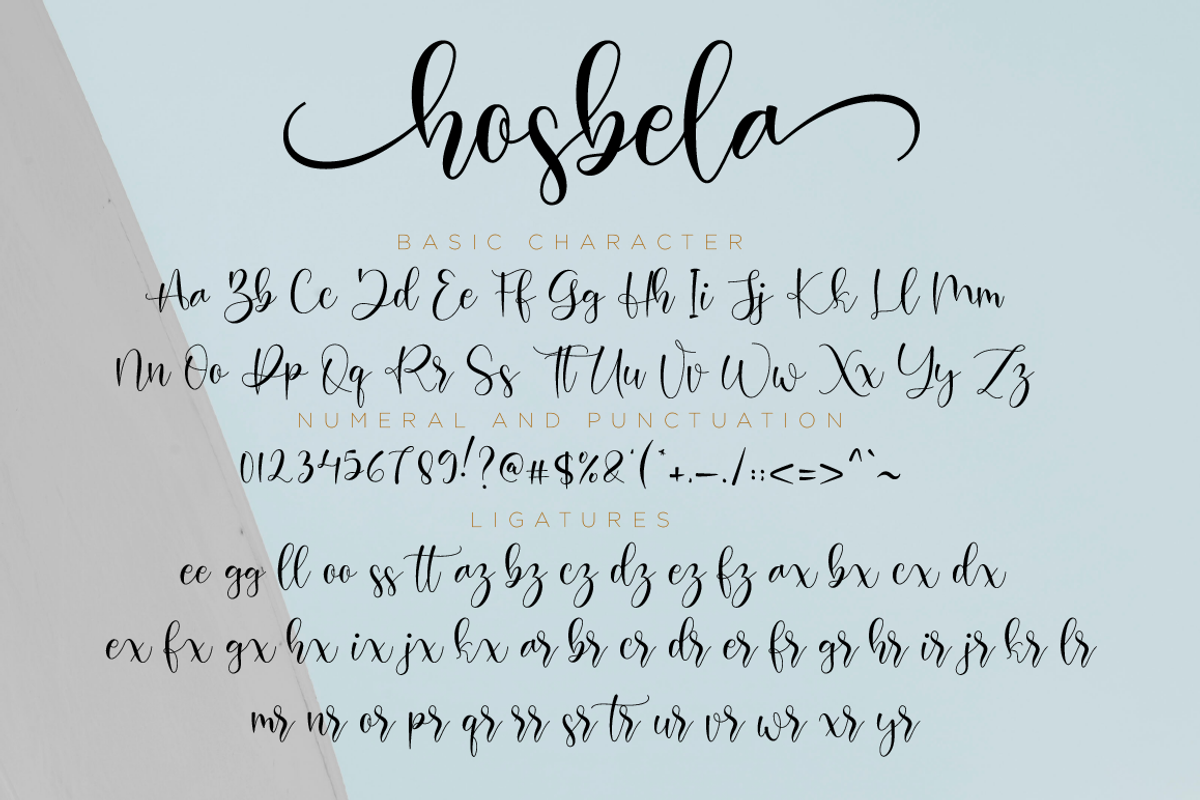 hosbela
BASIC CHARACTER
Aa Bb Cc Dd Ee Ff Gg Hh Ii Jj Kk Ll Mm
Nn Oo Pp Qq Rr Ss Tt Uu Vv Ww Xx Yy Zz
NUMERAL AND PUNCTUATION
0123456789!?@#$%&'(*+,-./:;<=>^`~
LIGATURES
ee gg ll oo ss tt az bz cz dz ez fz ax bx cx dx
ex fx gx hx ix jx kx ar br cr dr er fr gr hr ir jr kr lr
mr nr or pr qr rr sr tr ur vr wr xr yr